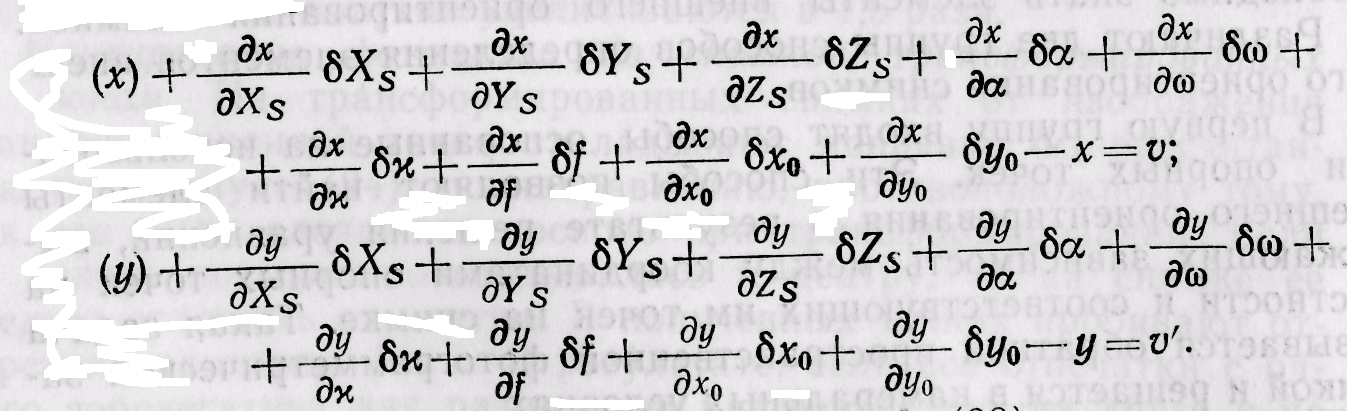 (x) + ∂x/∂X_S δX_S + ∂x/∂Y_S δY_S + ∂x/∂Z_S δZ_S + ∂x/∂α δα + ∂x/∂ω δω +
+ ∂x/∂ϰ δϰ + ∂x/∂f δf + ∂x/∂x₀ δx₀ + ∂x/∂y₀ δy₀ — x = v;
(y) + ∂y/∂X_S δX_S + ∂y/∂Y_S δY_S + ∂y/∂Z_S δZ_S + ∂y/∂α δα + ∂y/∂ω δω +
+ ∂y/∂ϰ δϰ + ∂y/∂f δf + ∂y/∂x₀ δx₀ + ∂y/∂y₀ δy₀ — y = v′.